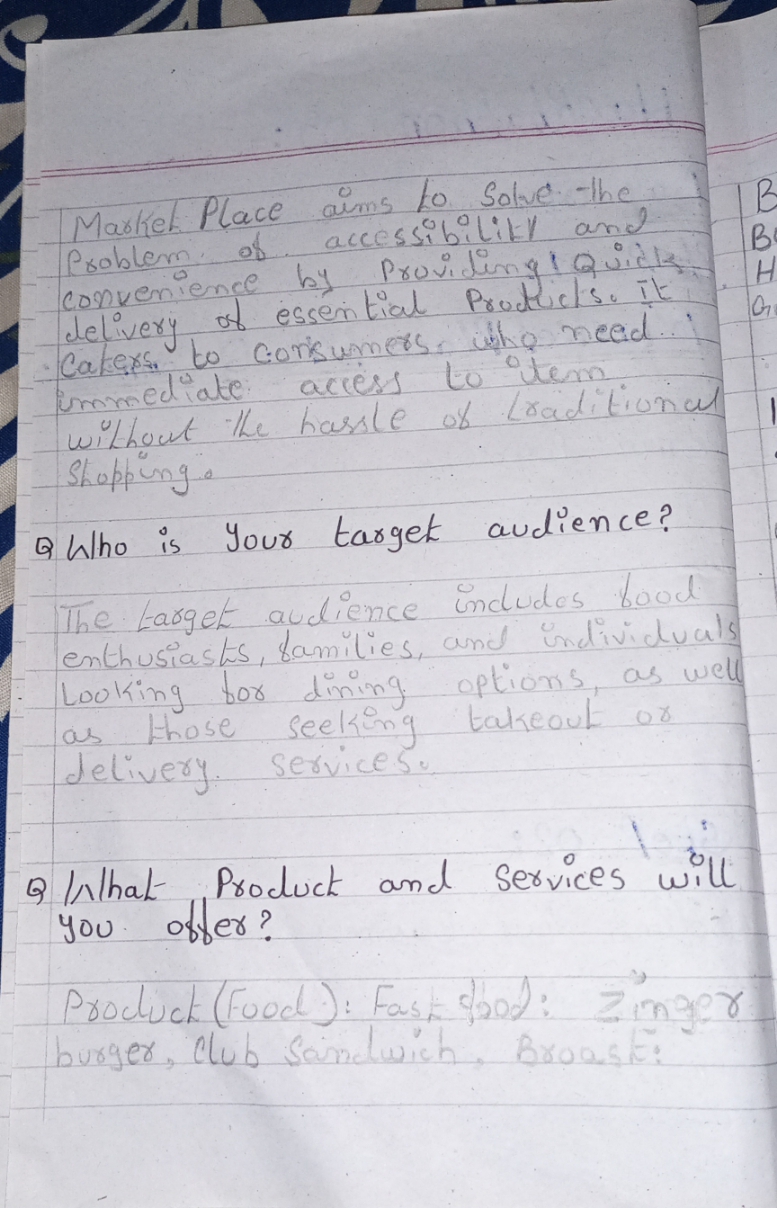 Market Place aims to Solve the
Problem of accessibility and
convenience by Providing Quick
delivery of essential Products. It
Caters to consumers who need
immediate access to item
without the hassle of traditional
Shopping.
Q Who is your target audience?
The target audience includes food
enthusiasts, families, and individuals
Looking for dining options, as well
as those seeking takeout or
delivery services.
Q What Product and services will
you offer?
Product (Food): Fast food: Zinger
burger, Club Sandwich, Broast:
B
B
H
G